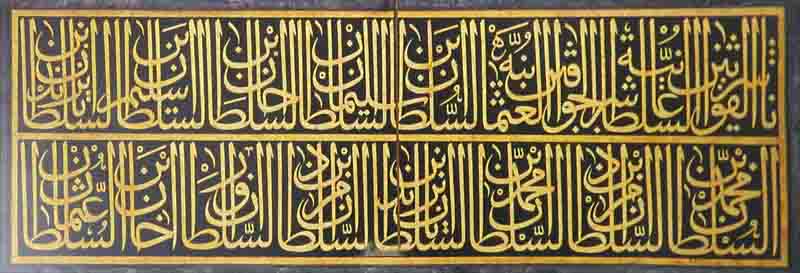 ناشر القوانين السلطانية عاشر الخواقين العثمانية السلطان بن السلطان سليمان خان بن السلطان سليم بن السلطان بايزيد بن
السلطان محمد بن السلطان مراد بن السلطان محمد بن السلطان بايزيد بن السلطان مراد بن السلطان اورخان بن السلطان عثمان